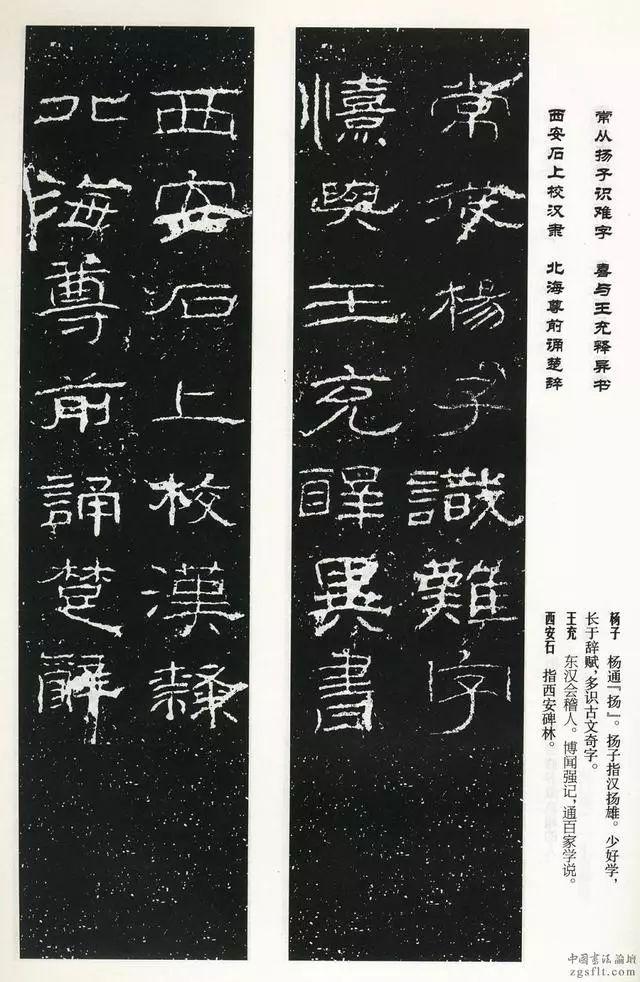 常从扬子识难字 喜与王充释异书
西安石上校汉隶 北海尊前诵楚辞
杨子 杨通『扬』。扬子指汉扬雄。少好学，
长于辞赋，多识古文奇字。
王充 东汉会稽人。博闻强记，通百家学说。
西安石 指西安碑林。
常從楊子識難字
憘與王充釋異書
西安石上校漢隸
北海尊前誦楚辭
中国書法論壇
zgsflt.com